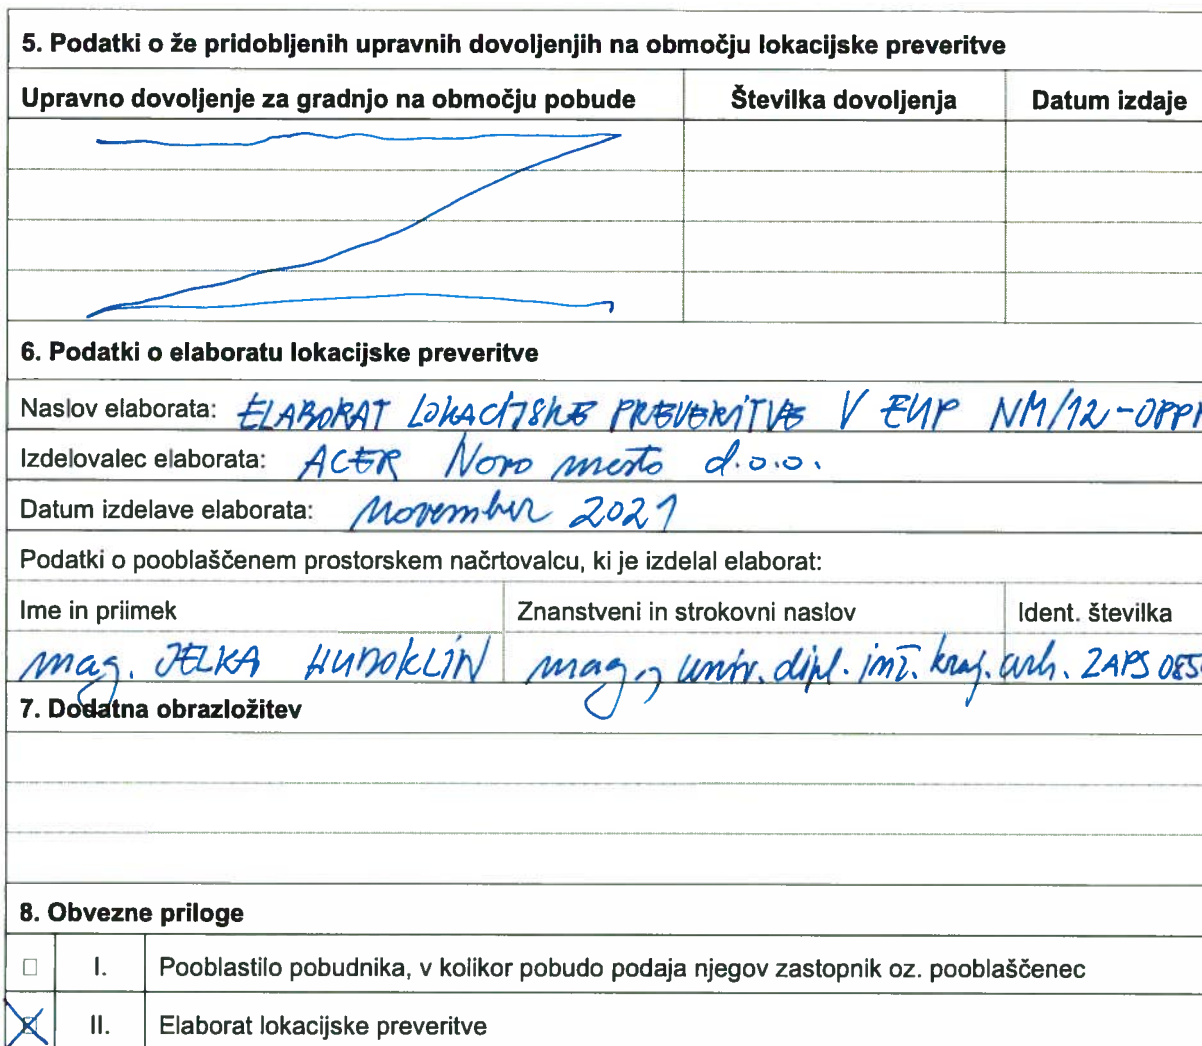 5. Podatki o že pridobljenih upravnih dovoljenjih na območju lokacijske preveritve
Upravno dovoljenje za gradnjo na območju pobude Številka dovoljenja Datum izdaje
6. Podatki o elaboratu lokacijske preveritve
Naslov elaborata: ELABORAT LOKACIJSKE PREVERITVE V EUP NM/12-OPPN
Izdelovalec elaborata: ACER Novo mesto d.o.o.
Datum izdelave elaborata: November 2021
Podatki o pooblaščenem prostorskem načrtovalcu, ki je izdelal elaborat:
Ime in priimek Znanstveni in strokovni naslov Ident. številka
mag. JELKA HUDOKLIN mag., univ. dipl. inž. kraj. arh. ZAPS
7. Dodatna obrazložitev
8. Obvezne priloge
I. Pooblastilo pobudnika, v kolikor pobudo podaja njegov zastopnik oz. pooblaščenec
II. Elaborat lokacijske preveritve